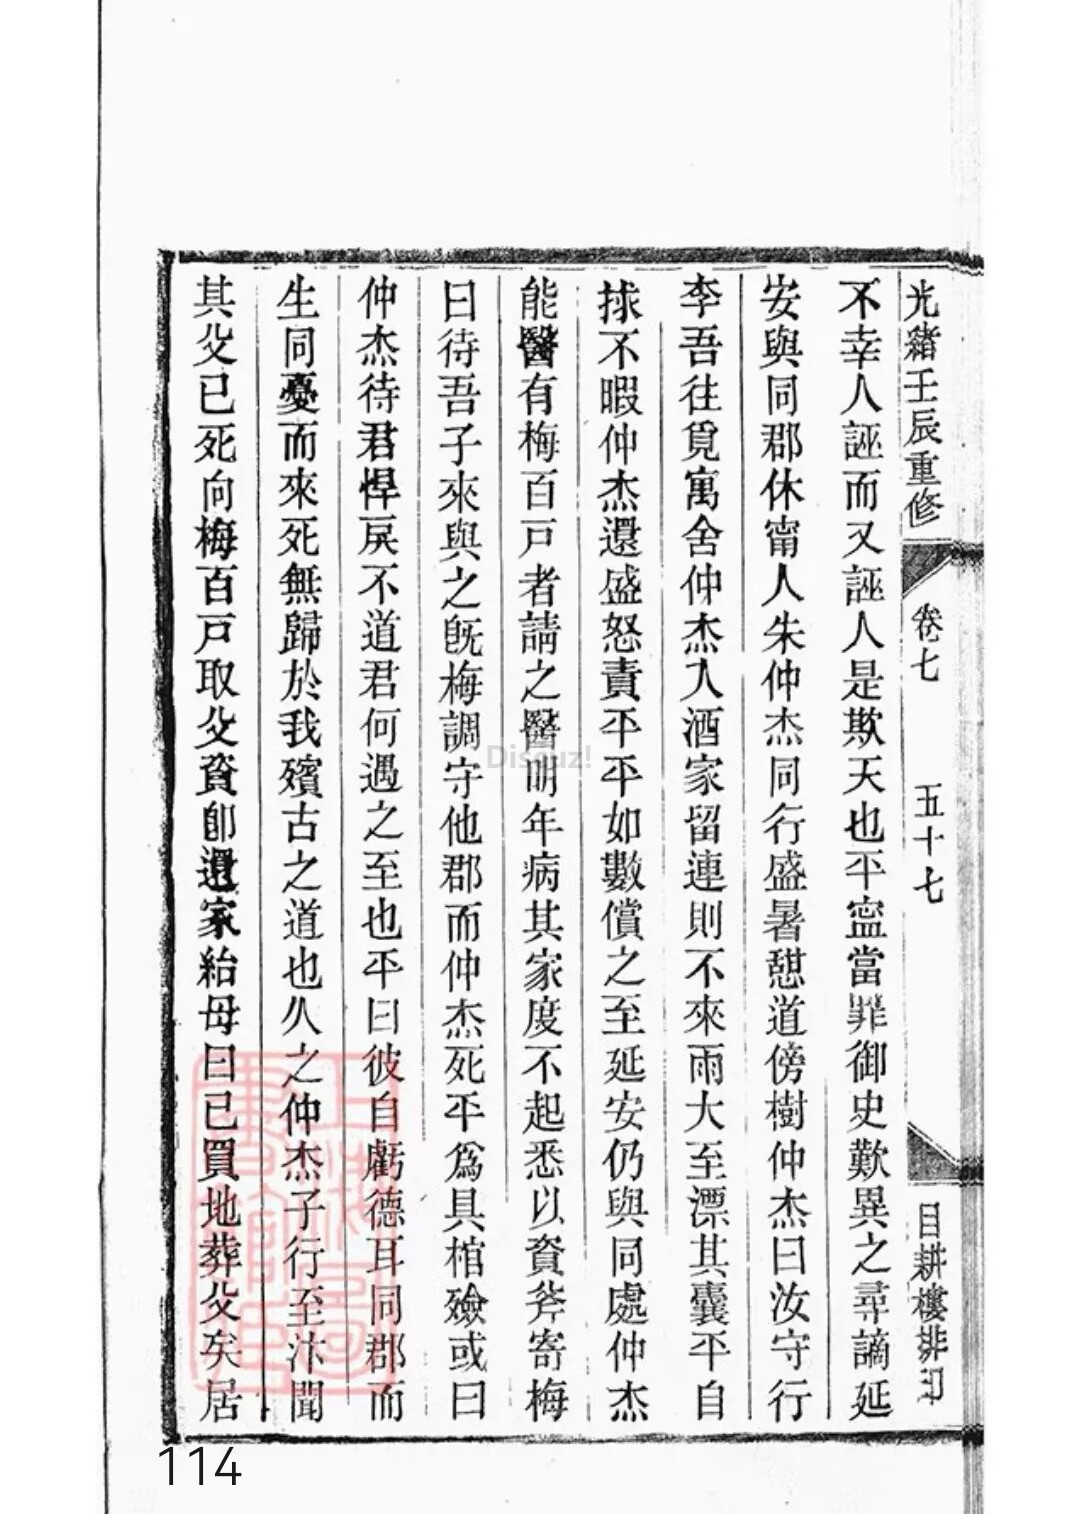 光緒壬辰重修
卷七
五十七
目耕樓排印
不幸人誣而又誣人是欺天也平寍當罪御史歎異之尋謫延
安與同郡休甯人朱仲杰同行盛暑憇道傍樹仲杰曰汝守行
李吾往覓寓舍仲杰入酒家留連則不來雨大至漂其囊平自
捄不暇仲杰還盛怒責平平如數償之至延安仍與同處仲杰
能醫有梅百戸者請之醫明年病其家度不起悉以資斧寄梅
曰待吾子來與之旣梅調守他郡而仲杰死平爲具棺殮或曰
仲杰待君悍戾不道君何遇之至也平曰彼自虧德耳同郡而
生同憂而來死無歸於我殯古之道也久之仲杰子行至汴聞
其父已死向梅百戸取父資卽還家紿母曰已買地葬父矣居
Discuz!
114